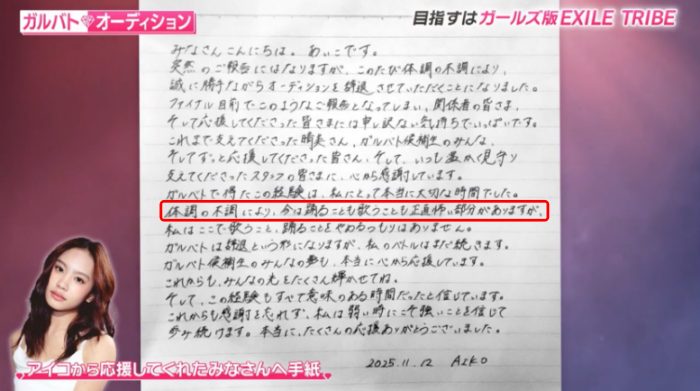 ガルバト オーディション
目指すはガールズ版EXILE TRIBE
みなさんこんにちは。あいこです。
突然のご報告にはなりますが、このたび体調の不調により、
誠に勝手ながらオーディションを辞退させていただくことになりました。
ファイナル目前でこのようなご報告となってしまい、関係者の皆さま、
そして応援してくださった皆さまには申し訳ない気持ちでいっぱいです。
これまで支えてくださった晴美さん、ガルバト候補生のみんな、
そしてずっと応援してくださった皆さん、そして、いつも温かく見守り
支えてくださったスタッフの皆さまに、心から感謝しています。
ガルバトで得たこの経験は、私にとって本当に大切な時間でした。
体調の不調により、今は踊ることも歌うことも正直怖い部分がありますが、
私はここで歌うこと、踊ることをやめるつもりはありません。
ガルバトは辞退という形になりますが、私のバトルはまだ続きます。
ガルバト候補生のみんなの夢も、本当に心から応援しています。
これからも、みんなの光をたくさん輝かせてね。
そして、この経験もすべて意味のある時間だったと信じています。
これからも感謝を忘れず、私は弱い時にこそ強いことを信じて
歩み続けます。本当に、たくさんの応援ありがとうございました。
2025.11.12 AIKO
アイコから応援してくれたみなさんへ手紙